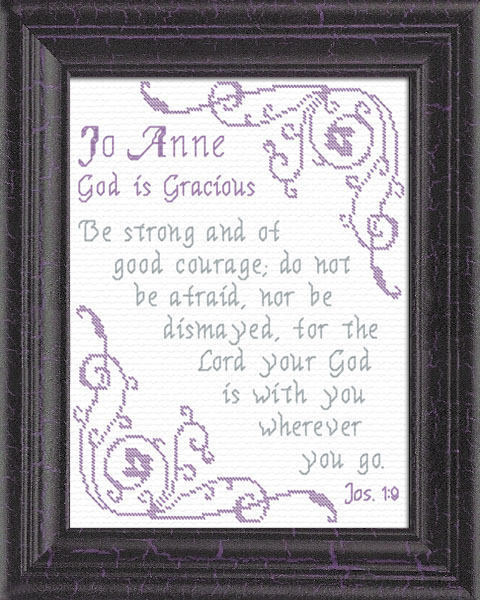 Jo Anne
God is Gracious
Be strong and of
good courage; do not
be afraid, nor be
dismayed, for the
Lord your God
is with you
wherever
you go.
Jos. 1:9